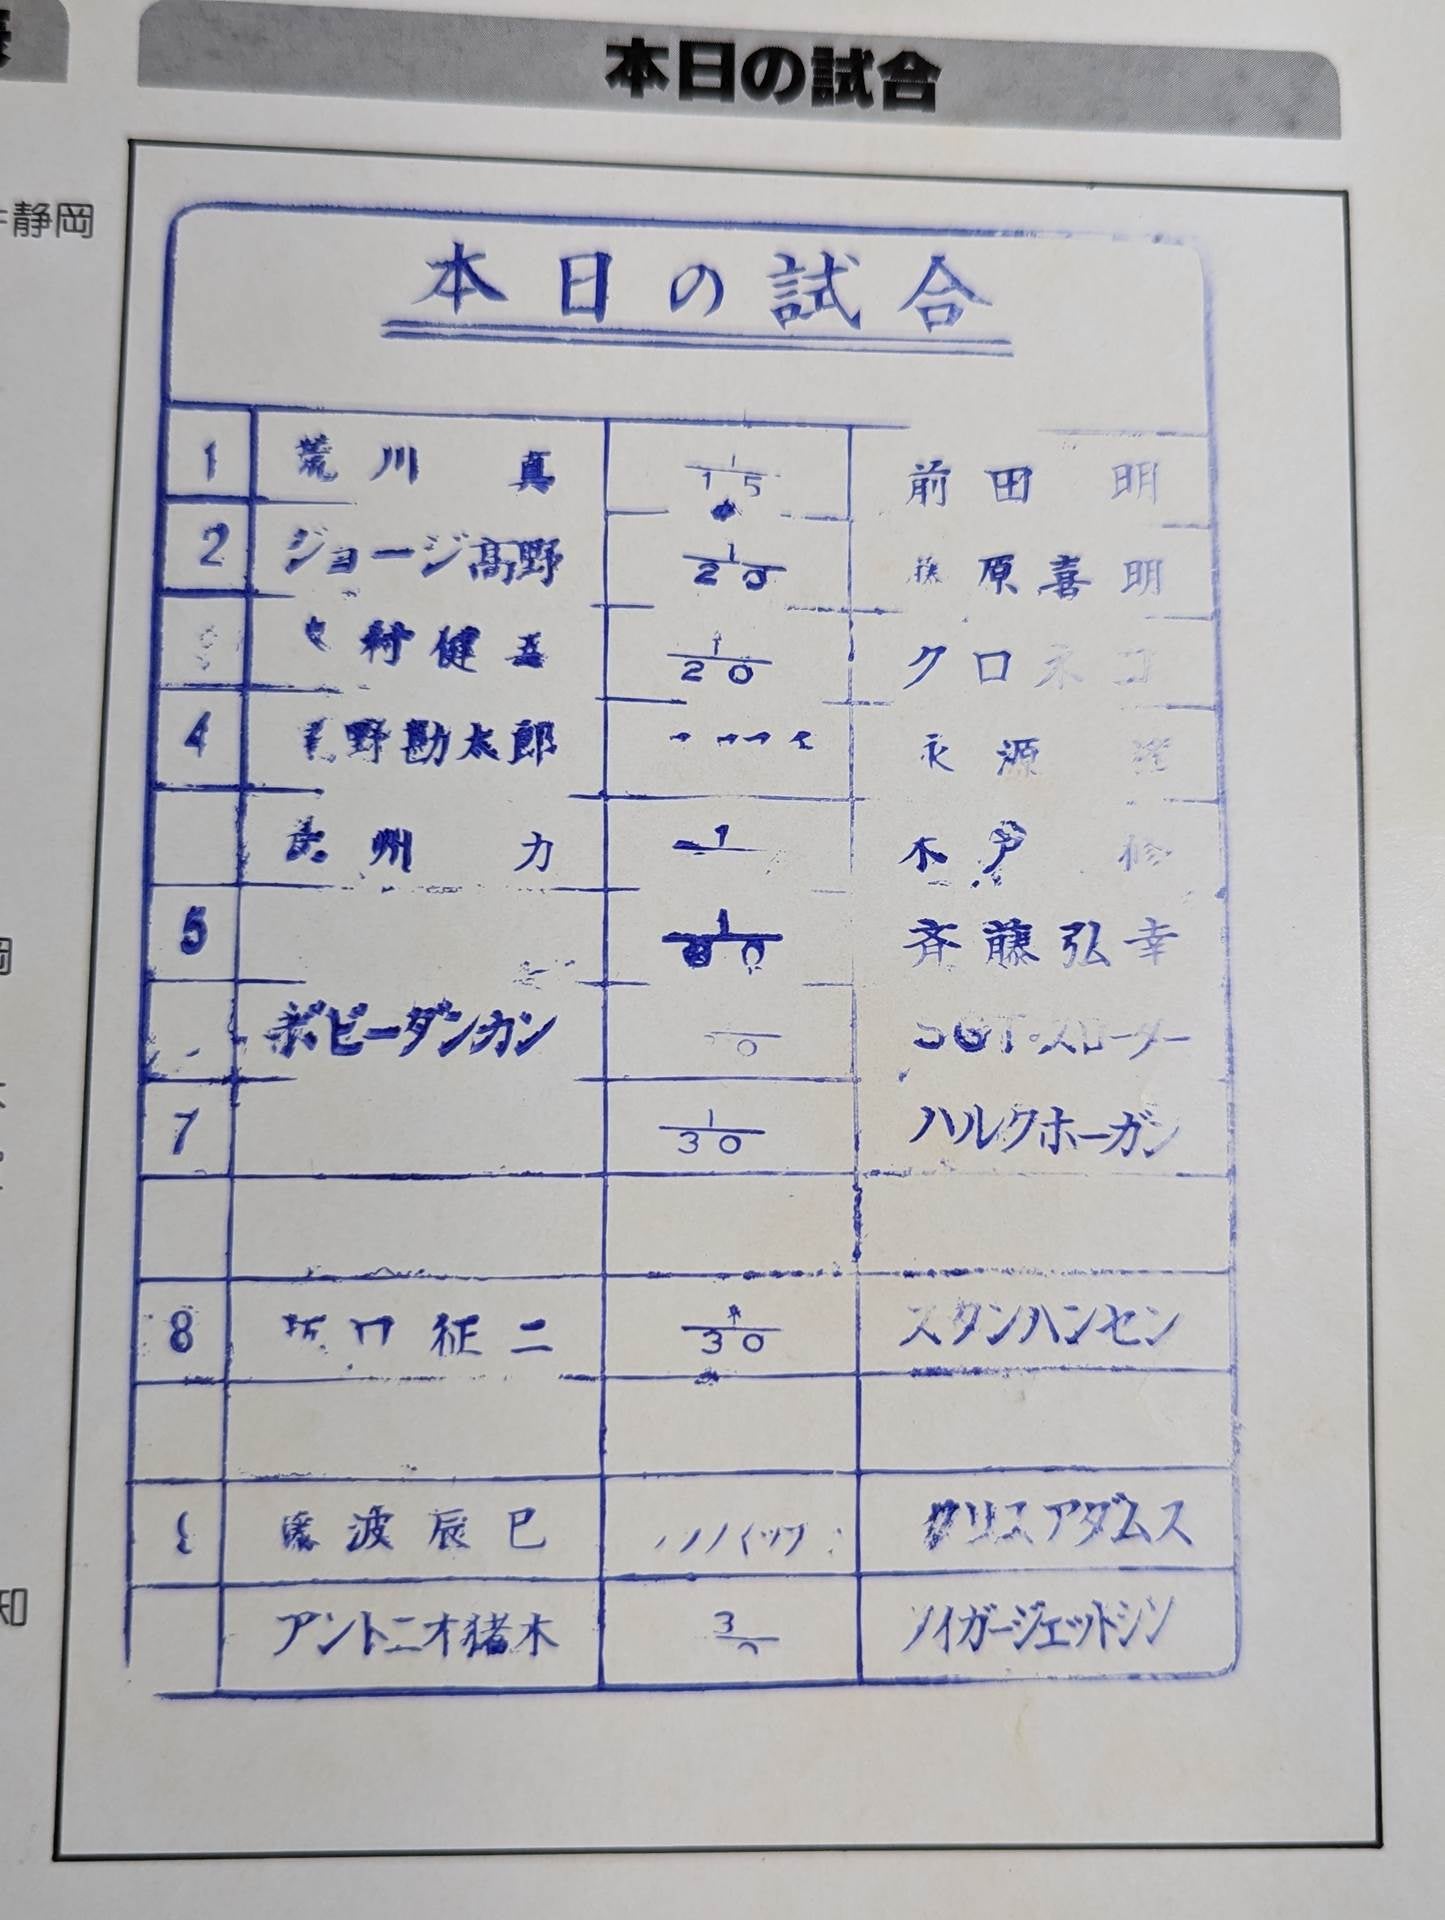 本日の試合
静岡
本日の試合
1 荒川 真 1/15 前田 明
2 ジョージ高野 1/20 藤原喜明
村健吾 1/20 クロネコ
4 野勘太郎 永源
長州 力 1 木戸 修
5 1 0 斉藤弘幸
ボビーダンカン 0 SGT.スローター
7 1/30 ハルクホーガン
8 坂口征二 1/30 スタンハンセン
藤波辰巳 クリスアダムス
アントニオ猪木 3 タイガージェットシン
知